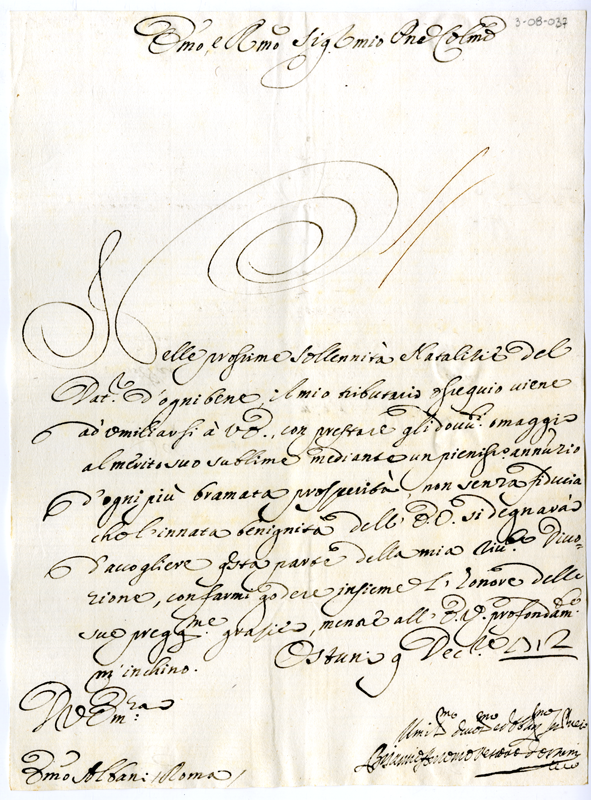 3-08-037
Emo, e Rmo Sig.r mio Pne Colmo
Nelle prossime Sollennità Natalizie del
Dat.re d'ogni bene, il mio tributario ossequio viene
ad' umiliarsi à V.E., con prestare gli dovuti omaggi
al merito suo sublime mediante un pieniss.o annunzio
d'ogni più bramata prosperità, non senza fiducia
che l'innata benignità dell' E.V. si degnarà
d'accogliere questa parte della mia Divo-
zione, con farmi godere insieme l'onore delle
sue pregg.me grazie, mentre all' E.V. profondam.te
m'inchino. Ostuni 9 Dec.re 1712
Di V. Em.za
Emo Albani / Roma /
Umil.mo divot.mo et obl.mo